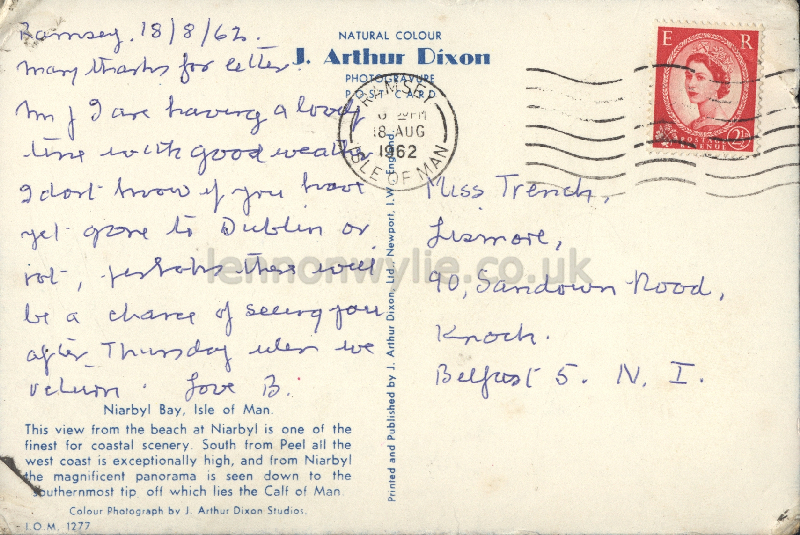 Ramsey. 18/8/62.
Many thanks for letter.
M & I are having a lovely
time with good weather
I don't know if you have
yet gone to Dublin or
not, perhaps there will
be a chance of seeing you
after Thursday when we
return. Love B.
Niarbyl Bay, Isle of Man.
This view from the beach at Niarbyl is one of the
finest for coastal scenery. South from Peel all the
west coast is exceptionally high, and from Niarbyl
the magnificent panorama is seen down to the
southernmost tip off which lies the Calf of Man.
Colour Photograph by J. Arthur Dixon Studios.
I.O.M. 1277
NATURAL COLOUR
J. Arthur Dixon
PHOTOGRAVURE
POST CARD
Printed and Published by J. Arthur Dixon, Ltd., Newport, I.W., England
RAMSEY
PM
18 AUG
1962
ISLE OF MAN
E R
POSTAGE
REVENUE
2½D
Miss Trench,
Lismore,
90, Sandown Road,
Knock.
Belfast 5. N. I.
lennonwylie.co.uk